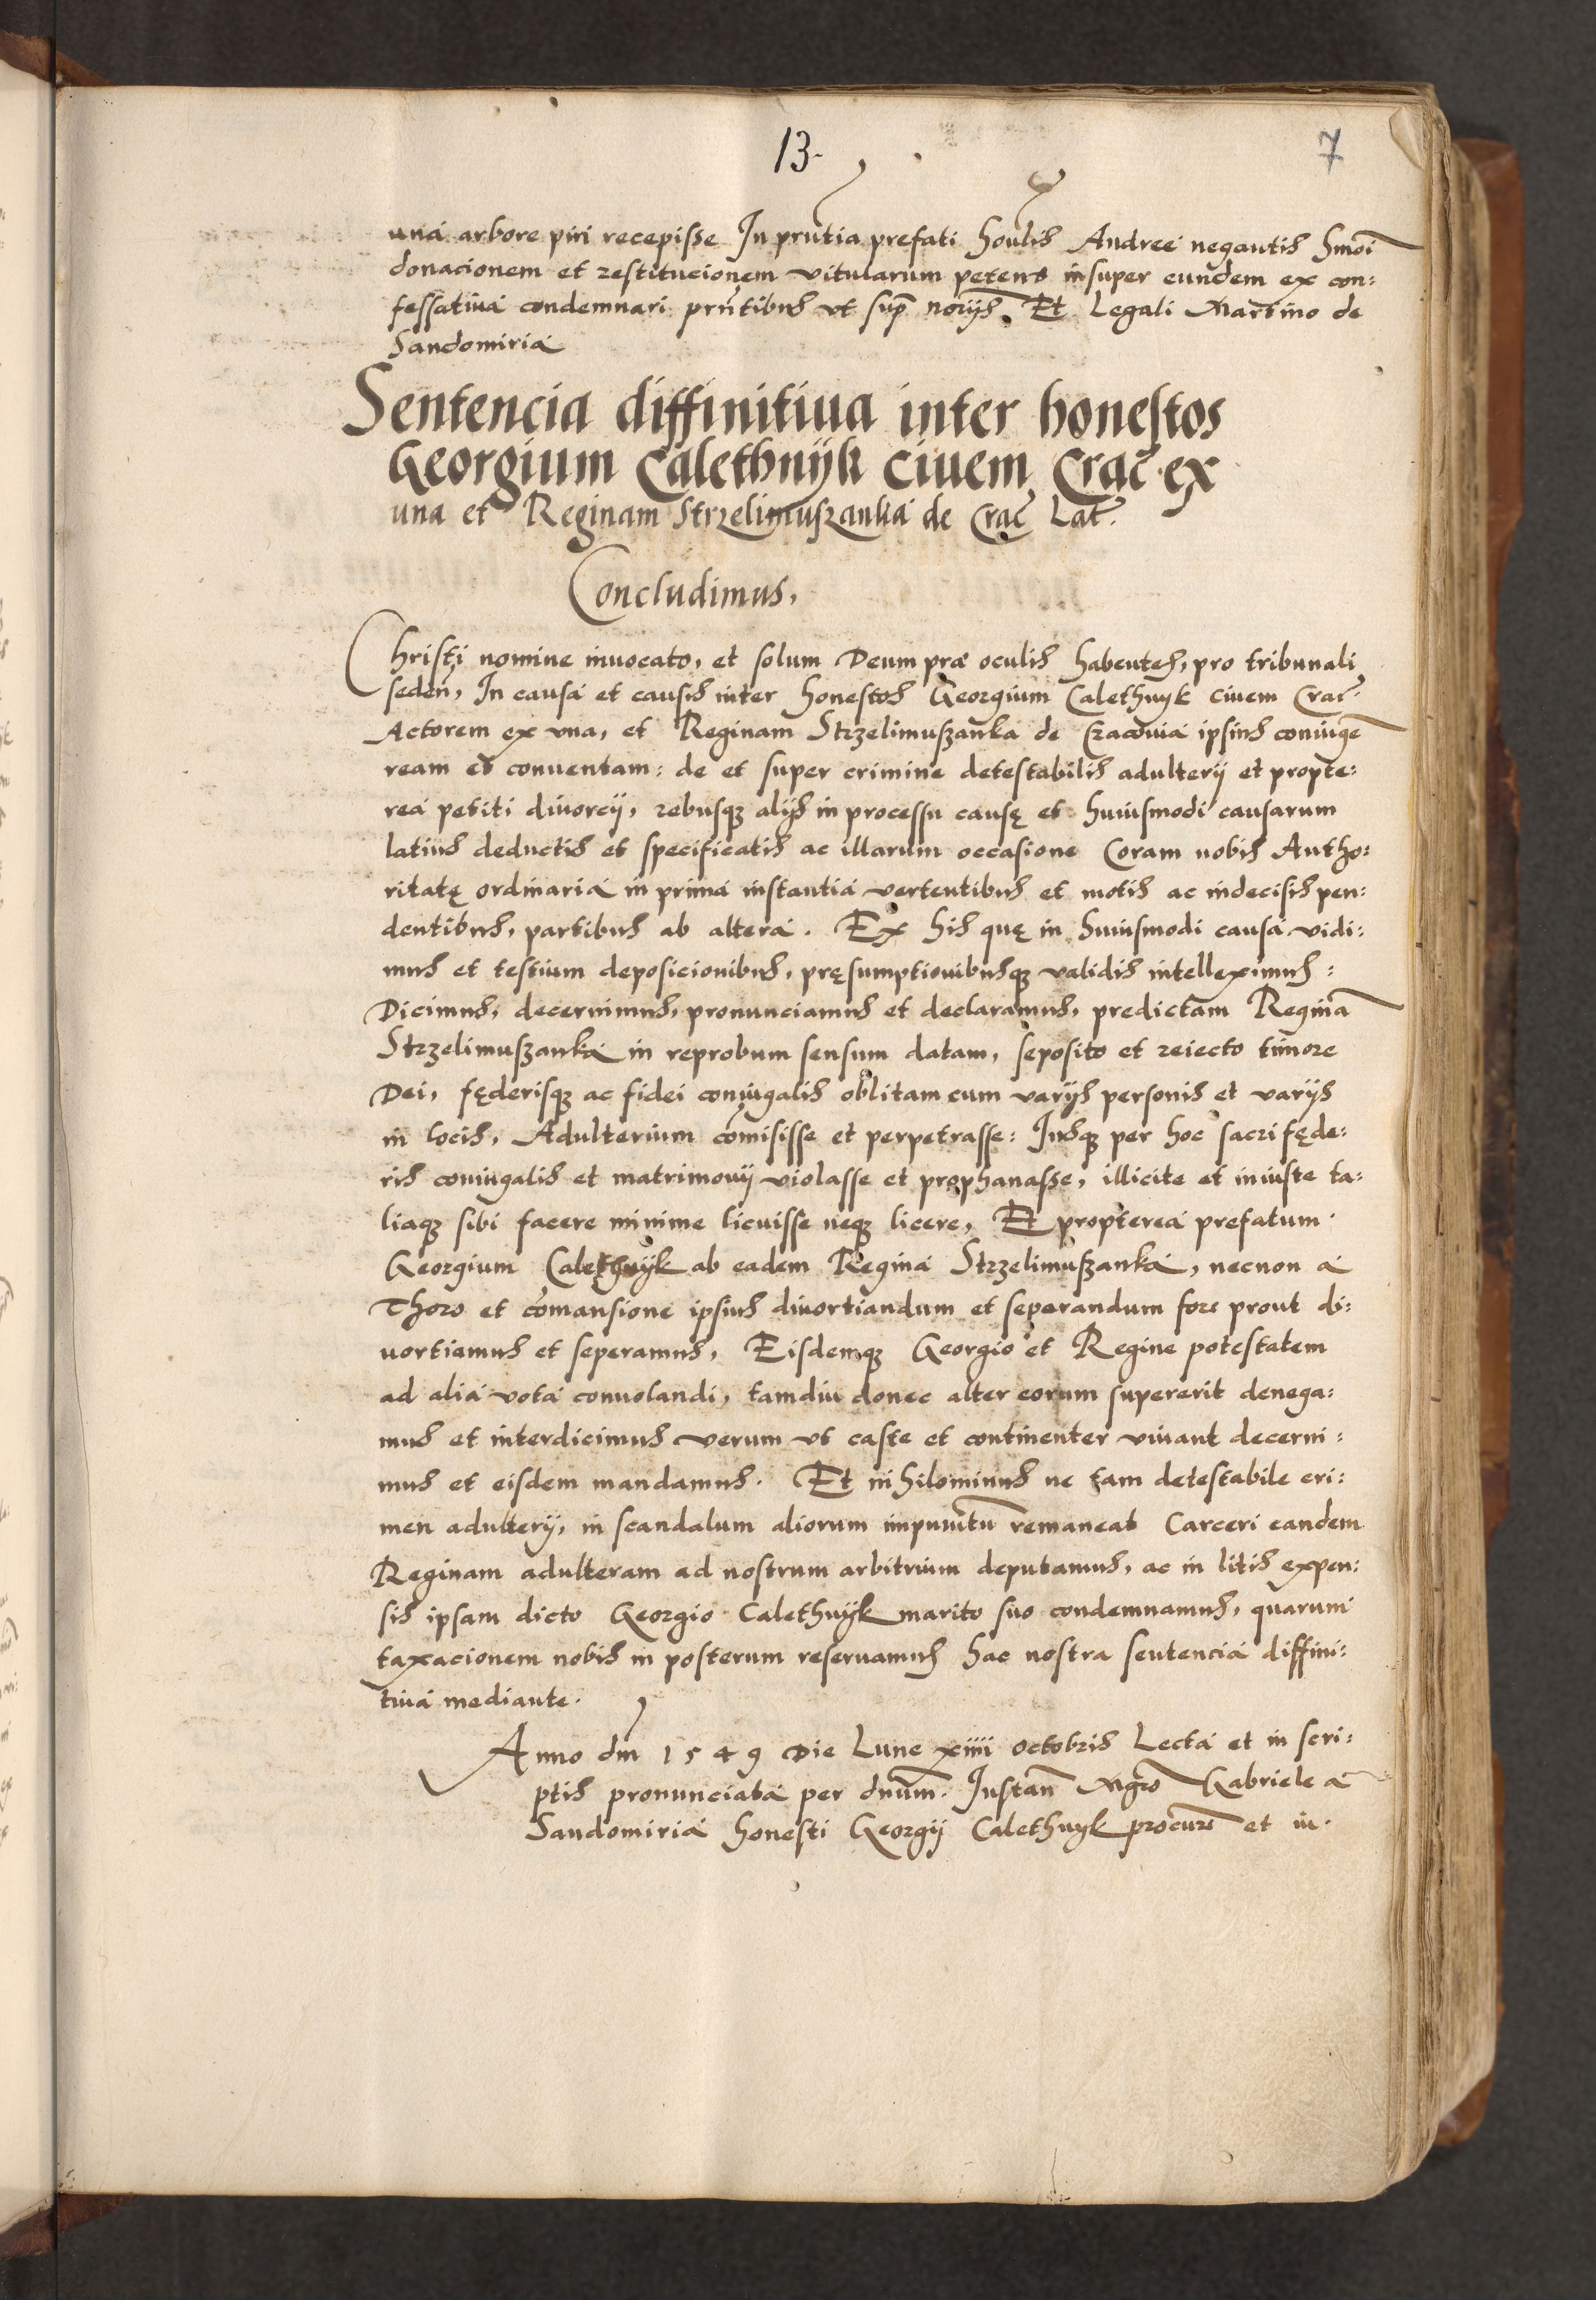 13.
7
una arbore piri recepisse In prntia prefati honlis Andree negantis hmoi
donacionem et restitucionem vitularum petens insuper eundem ex con:
fessativa condemnari prntibus vt supr norijs. Et Legali Martino de
Sandomiria
Sentencia diffinitiua inter honestos
Georgium Calethnyk ciuem Crac ex
una et Reginam Strzelimuszanka de Crac Lat.
Concludimus,
Christi nomine inuocato, et solum Deum præ oculis habentes, pro tribunali
seden, In causa et causis inter honestos Georgium Calethnyk ciuem Crac.
Actorem ex vna, et Reginam Strzelimuszanka de Cracouia ipsius coniuge
ream et conuentam: de et super crimine detestabilis adulterij et propte:
rea petiti diuorcij, rebusq alijs in processu causę et huiusmodi causarum
latius deductis et specificatis ac illarum occasione Coram nobis Autho:
ritatę ordinaria in prima instantia vertentibus et motis ac indecisis pen:
dentibus, partibus ab altera. Ex his quę in huiusmodi causa vidi:
mus et testium deposicionibus, pręsumptionibusq validis intelleximus:
Dicimus, decernimus, pronunciamus et declaramus, predictam Regina
Strzelimuszanka in reprobum sensum datam, seposito et reiecto timore
Dei, fęderisq ac fidei coniugalis oblitam cum varijs personis et varijs
in locis, Adulterium comisisse et perpetrasse: Iusq per hoc sacri fęde:
ris coniugalis et matrimonij violasse et prophanasse, illicite et iniuste ta:
liaq sibi facere minime licuisse neq licere, Et propterea prefatum
Georgium Calethnyk ab eadem Regina Strzelimuszanka, necnon a
Thoro et comansione ipsius diuortiandum et seperandum fore prout di:
uortiamus et seperamus, Eisdemq Georgio et Regine potestatem
ad alia vota conuolandi, tamdiu donec alter eorum supererit denega:
mus et interdicimus verum vt caste et continenter viuant decerni:
mus et eisdem mandamus. Et nihilominus ne tam detestabile cri:
men adulterij, in scandalum aliorum impunitu remaneat Carceri eandem
Reginam adulteram ad nostrum arbitrium deputamus, ac in litis expen:
sis ipsam dicto Georgio Calethnyk marito suo condemnamus, quarum
taxacionem nobis in posterum reseruamus hac nostra sentencia diffini:
tiua mediante.
Anno dm 1549 Die Lune xiiii octobris Lecta et in scri:
ptis pronunciata per dnum. Instan Mgro Gabriele a
Sandomiria honesti Georgij Calethnyk procure et in.